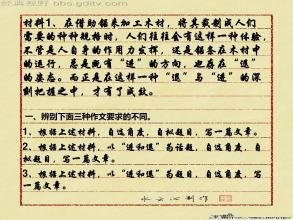 经典视野 bbs.gdltv.com
材料1、在借助锯来加工木材,将其裁制成人们
需要的种种规格时,人们往往会有这样一种体验,
不管是人自身的作用力发挥,还是锯条在木材中
的运行,总是既有“进”的方向,也存在“退”
的姿态。而正是在这样一种“退”与“进”的深
刻把握之中,才有了成就。
一、辨别下面三种作文要求的不同。
1、根据上述材料,自选角度,自拟题目,写一篇文章。
2、根据上述材料,以“进和退”为话题,自选角度,自
拟题目,写一篇文章。
3、根据上述材料,以“进和退”为题目,自选角度,写
一篇文章。
水云心制作